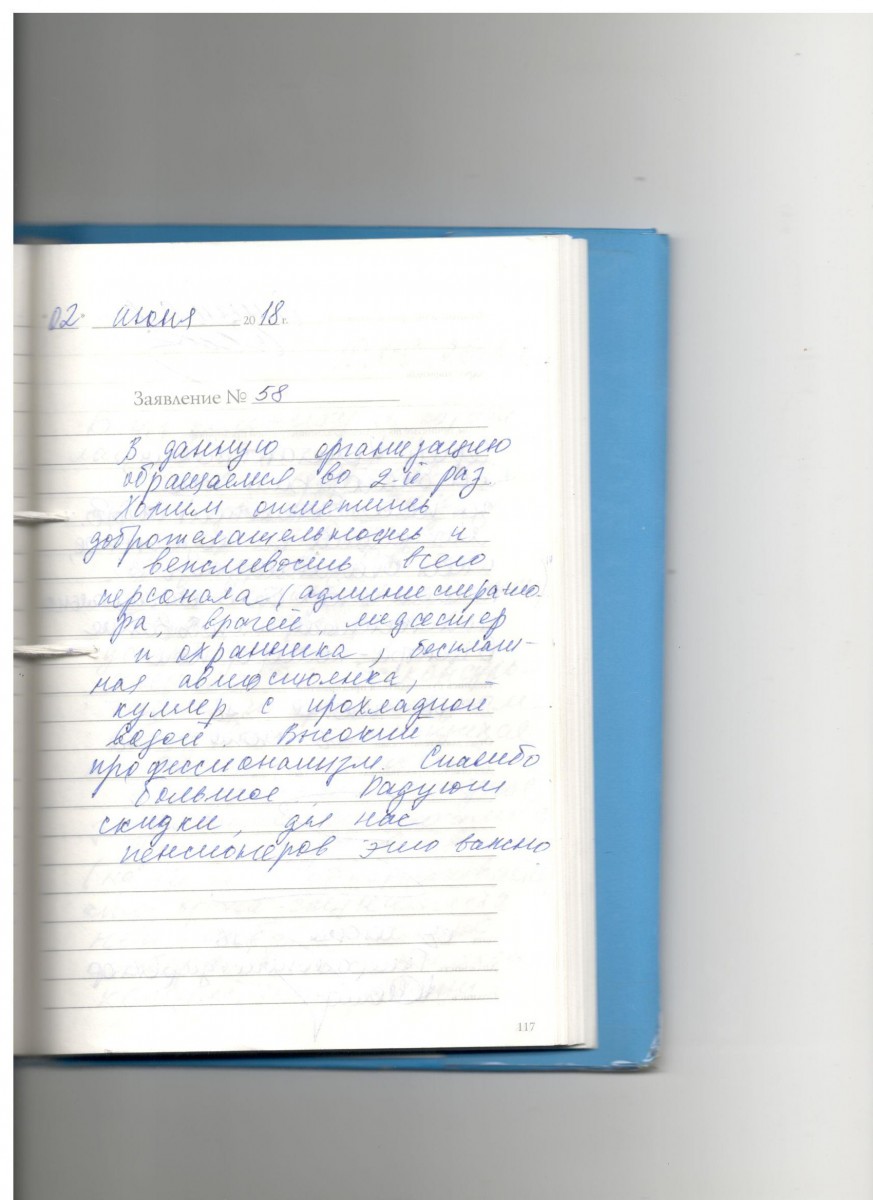 "02" июня 2018 г.
Заявление № 58
В данную организацию
обращаемся во 2-й раз.
Хотим отметить
доброжелательность и
вежливость всего
персонала (администрато-
ра, врачей, медсестер
и охранника), бесплат-
ная автостоянка,
куллер с прохладной
водой. Высокий
профессионализм. Спасибо
большое. Радуют
скидки, для нас
пенсионеров это важно
117